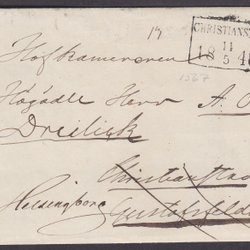 19.
CHRISTIANS
11
18 5 4
Hofkamereren
1567
Högädle Herr A. O
Dreilick
Christianstad
Helsingborg
Gustafsfeld